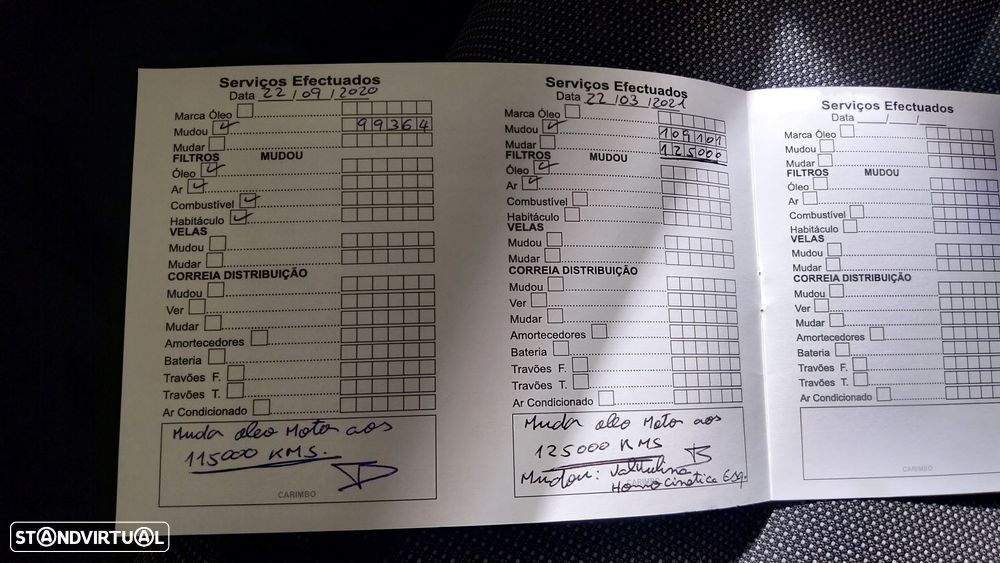 Serviços Efectuados
Data 22/09/2020
Marca Óleo
Mudou 99364
Mudar
FILTROS MUDOU
Óleo
Ar
Combustível
Habitáculo
VELAS
Mudou
Mudar
CORREIA DISTRIBUIÇÃO
Mudou
Ver
Mudar
Amortecedores
Bateria
Travões F.
Travões T.
Ar Condicionado
Muda oleo Motor aos
115000 KMS.
CARIMBO
Serviços Efectuados
Data 22/03/2021
Marca Óleo
Mudou 109101
Mudar 125000
FILTROS MUDOU
Óleo
Ar
Combustível
Habitáculo
VELAS
Mudou
Mudar
CORREIA DISTRIBUIÇÃO
Mudou
Ver
Mudar
Amortecedores
Bateria
Travões F.
Travões T.
Ar Condicionado
Muda oleo Motor aos
125000 KMS
Mudou:
Homocinetica Esq.
CARIMBO
Serviços Efectuados
Data / /
Marca Óleo
Mudou
Mudar
FILTROS MUDOU
Óleo
Ar
Combustível
Habitáculo
VELAS
Mudou
Mudar
CORREIA DISTRIBUIÇÃO
Mudou
Ver
Mudar
Amortecedores
Bateria
Travões F.
Travões T.
Ar Condicionado
CARIMBO
STANDVIRTUAL